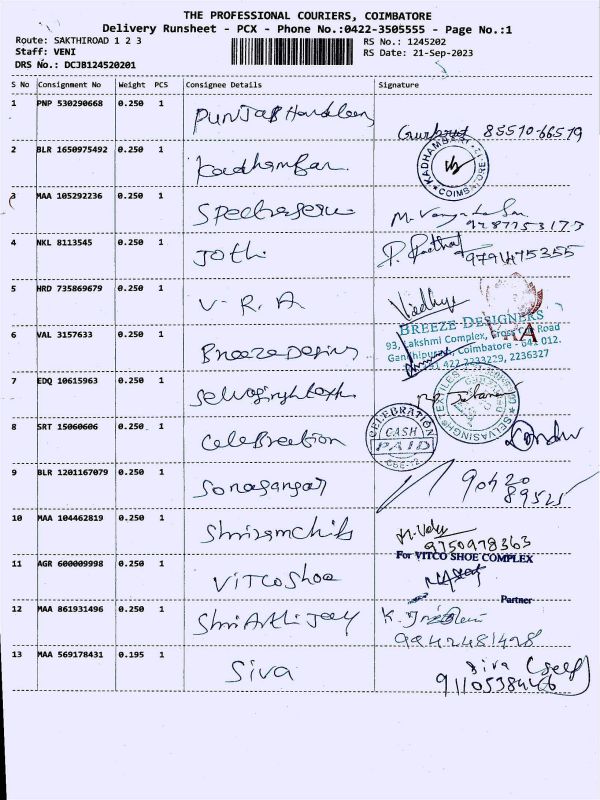 THE PROFESSIONAL COURIERS, COIMBATORE
Delivery Runsheet - PCX - Phone No.:0422-3505555 - Page No.:1
Route: SAKTHIROAD 1 2 3
RS No.: 1245202
Staff: VENI
RS Date: 21-Sep-2023
DRS No.: DCJB124520201
S No Consignment No Weight PCS Consignee Details Signature
1 PNP 530290668 0.250 1
8557066579
2 BLR 1650975492 0.250 1 Kadhambari
KADHAMBARI COIMBATORE
3 MAA 105292236 0.250 1
4 NKL 8113545 0.250 1 Jothi
9791475355
5 HRD 735869679 0.250 1 V. R. A
Vidhya
6 VAL 3157633 0.250 1 Breeze Designs
BREEZE DESIGNERS
93, Lakshmi Complex, Cross Cut Road
Gandhipuram, Coimbatore - 641 012.
422 2233229, 2236327
7 EDQ 10615963 0.250 1
SELVASINGH TEXTILES
8 SRT 15060606 0.250 1 Celebreetion
CELEBRATION
CASH
PAID
CBE-12
9 BLR 1201167079 0.250 1
90420
89525
10 MAA 104462819 0.250 1
9750978363
11 AGR 600009998 0.250 1 Vitco Shoe
For VITCO SHOE COMPLEX
Partner
12 MAA 861931496 0.250 1
9942481428
13 MAA 569178431 0.195 1 Siva
Siva (self)